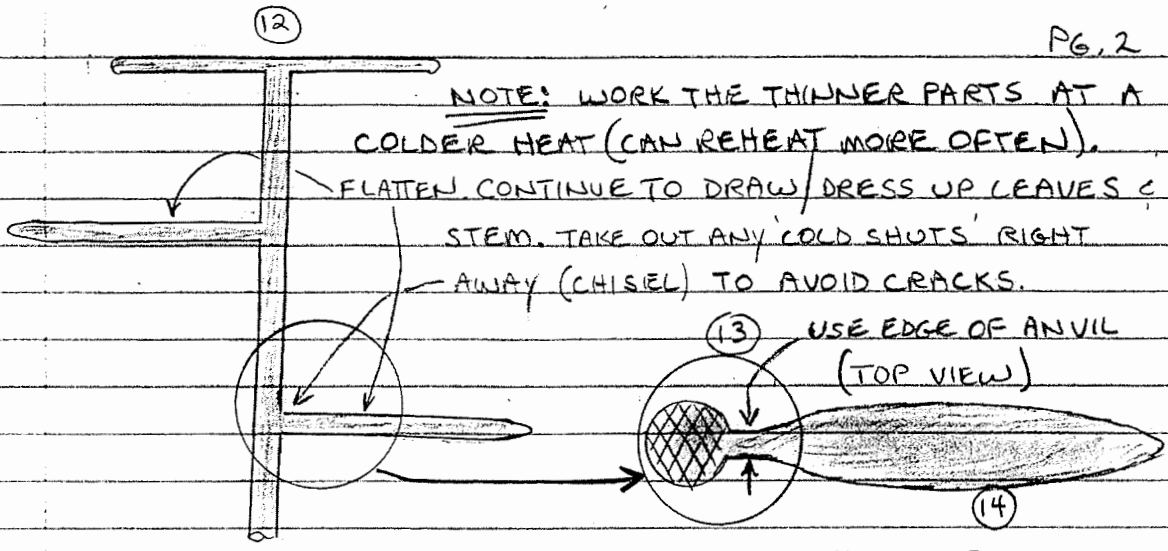 12
PG. 2
NOTE: WORK THE THINNER PARTS AT A
COLDER HEAT (CAN REHEAT MORE OFTEN).
FLATTEN. CONTINUE TO DRAW/DRESS UP LEAVES &
STEM. TAKE OUT ANY 'COLD SHUTS' RIGHT
AWAY (CHISEL) TO AVOID CRACKS.
13
USE EDGE OF ANVIL
(TOP VIEW)
14